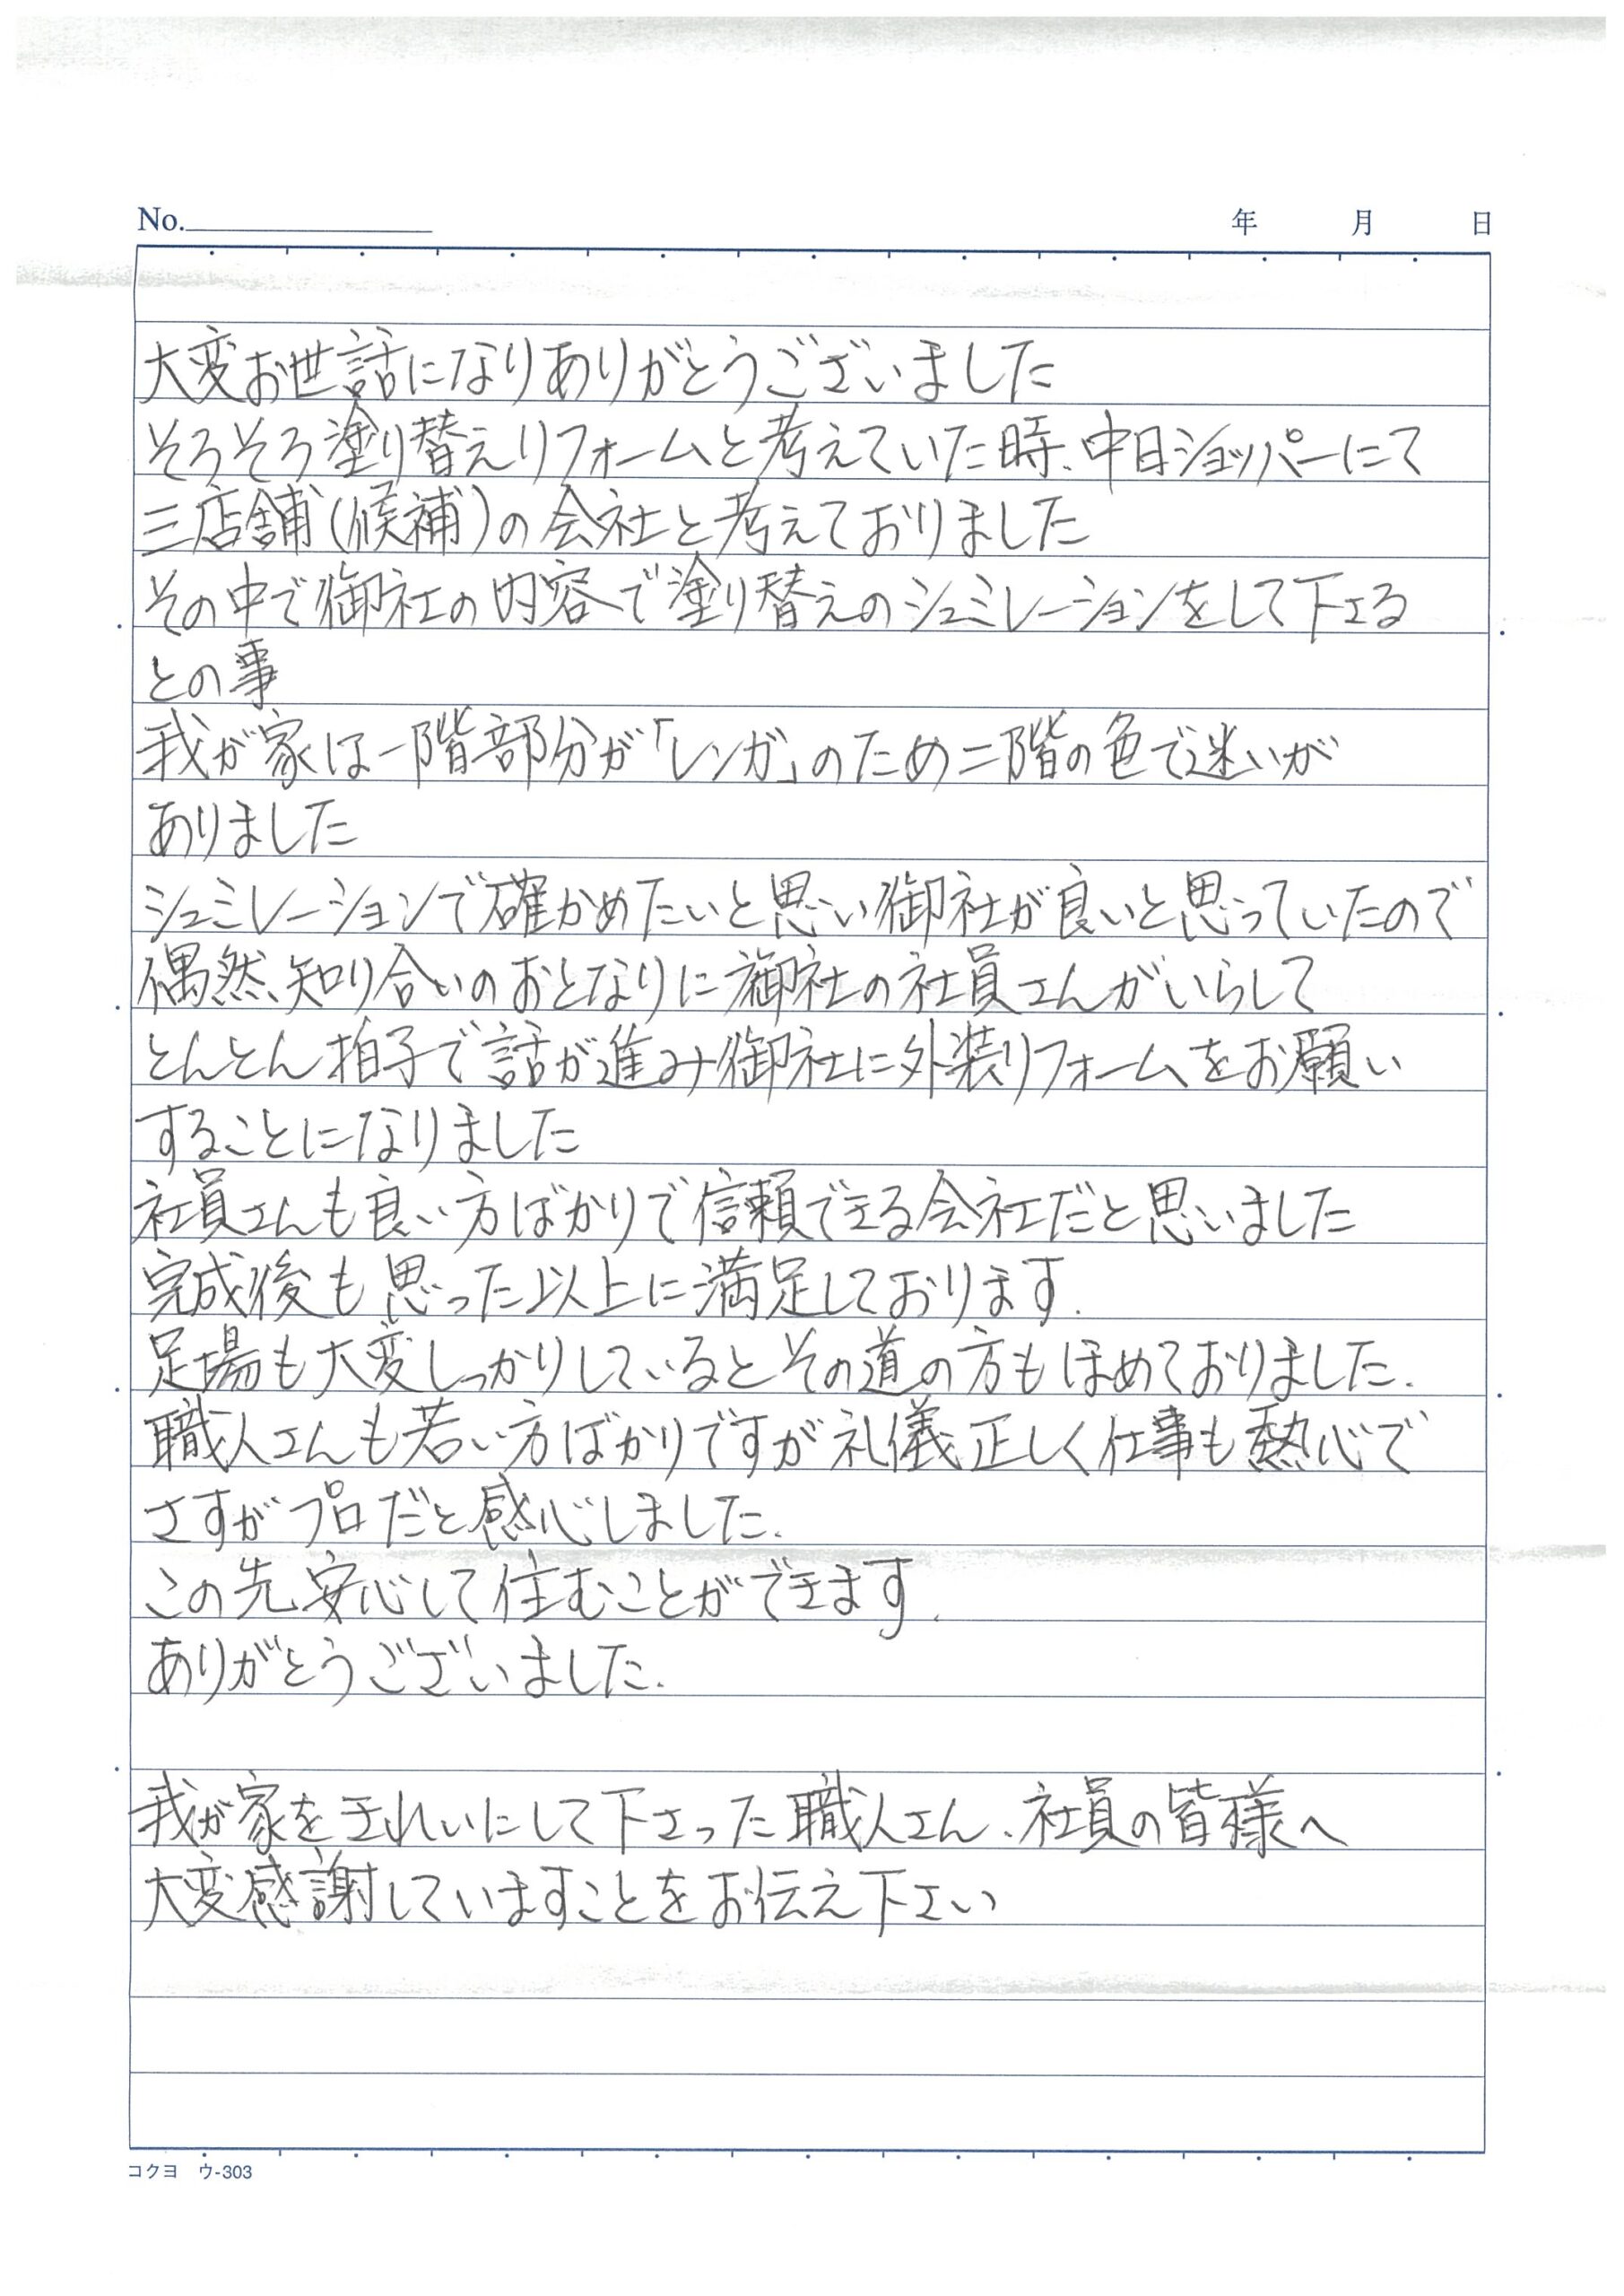 No.
年 月 日
大変お世話になりありがとうございました
そろそろ塗り替えリフォームと考えていた時、中日ショッパーにて
三店舗(候補)の会社と考えておりました
その中で御社の内容で塗り替えのシュミレーションをして下さる
との事
我が家は一階部分が「レンガ」のため二階の色で迷いが
ありました
シュミレーションで確かめたいと思い御社が良いと思っていたので
偶然、知り合いのおとなりに御社の社員さんがいらして
とんとん拍子で話が進み御社に外装リフォームをお願い
することになりました
社員さんも良い方ばかりで信頼できる会社だと思いました
完成後も思った以上に満足しております.
足場も大変しっかりしているとその道の方もほめておりました.
職人さんも若い方ばかりですが礼儀正しく仕事も熱心で
さすがプロだと感心しました.
この先安心して住むことができます.
ありがとうございました.
我が家をきれいにして下さった職人さん、社員の皆様へ
大変感謝していますことをお伝え下さい
コクヨ ウ-303